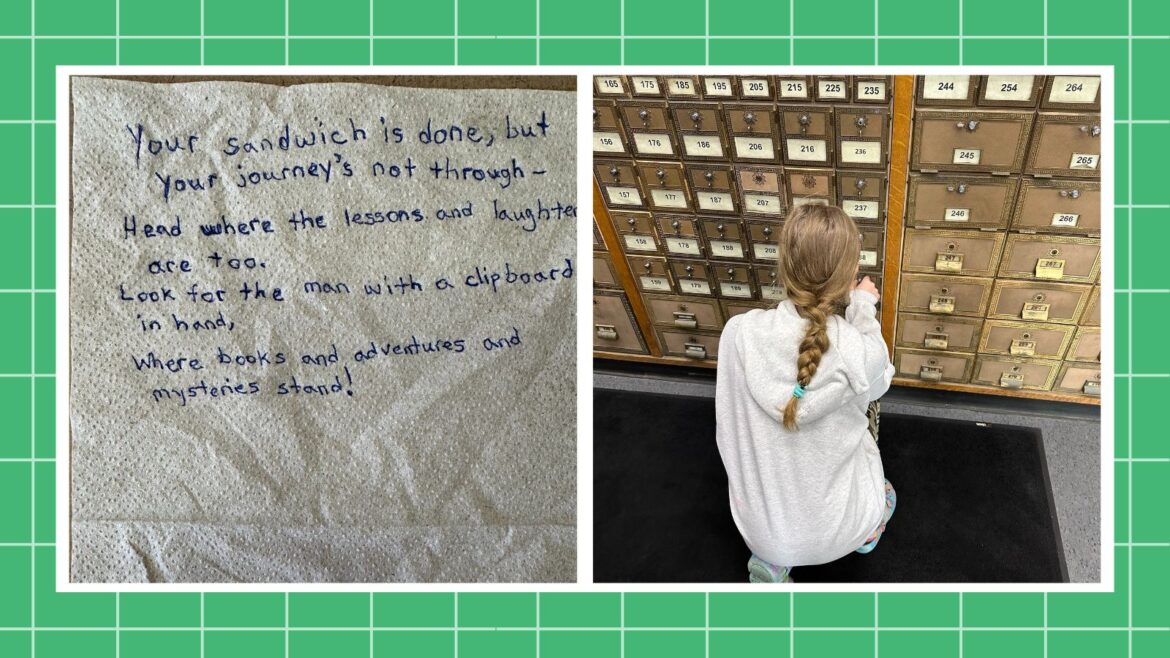 Your sandwich is done, but
your journey's not through -
Head where the lessons and laughter
are too.
Look for the man with a clipboard
in hand,
Where books and adventures and
mysteries stand!
165 175 185 195 205 215 225 235
156 176 186 206 216 236
157 177 187 207 237
158 178 188 208
159 179 189
244 254 264
245 265
246 266
247 267